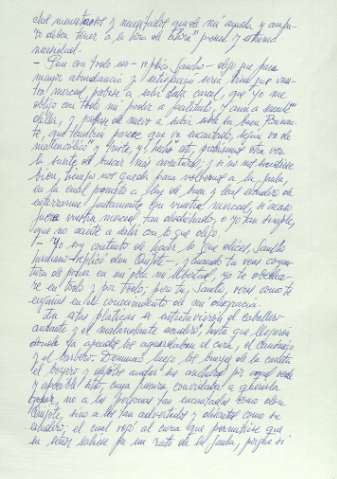 dos menesterosos y necesitados que de mi ayuda y ampa-
ro deben tener a la hora de ahora precisa y extrema
necesidad.
– Pues con todo eso – replicó Sancho – digo que para
mayor abundancia y satisfacción sería bien que vues-
tra merced probase a salir desta cárcel, que yo me
obligo con todo mi poder a facilitarlo, y aun a sacarle
della, y probase de nuevo a subir sobre su buen Rocinan-
te, que también parece que va encantado, según va de
malencólico y triste; y, hecho esto, probásemos otra vez
la suerte de buscar más aventuras; y si no nos sucediese
bien, tiempo nos queda para volvernos a la jaula,
en la cual prometo a ley de buen y leal escudero de
encerrarme juntamente con vuestra merced, si acaso
fuere vuestra merced tan desdichado, o yo tan simple,
que no acierte a salir con lo que digo.
– Yo soy contento de hacer lo que dices, Sancho
hermano – replicó don Quijote –, y cuando tu veas coyun-
tura de poner en mi obra mi libertad, yo te obedece-
ré en todo y por todo; pero tú, Sancho, verás como te
engañas en el conocimiento de mi desgracia.
En estas pláticas se entretuvieron el caballero
andante y el malandante escudero, hasta que llegaron
donde ya apeados los aguardaban el cura, el canónigo
y el barbero. Desunció luego los bueyes de la carreta
el boyero y dejólos andar a sus anchuras por aquel verde
y apacible sitio, cuya frescura convidaba a quererla
gozar, no a las personas tan encantadas como don
Quijote, sino a los tan advertidos y discretos como su
escudero; el cual rogó al cura que permitiese que
su señor saliese por un rato de la jaula, porque si